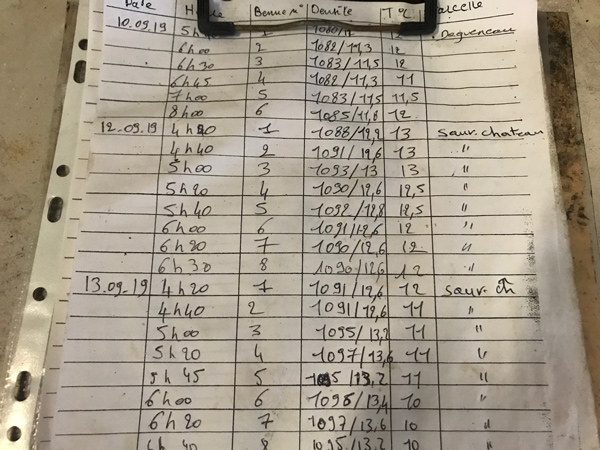 Date Benne n° Densité T°C
10.09.19 5h 1 1080/11 12 Dagueneau
6h00 2 1082/11,3 12
6h30 3 1083/11,5 12
6h45 4 1082/11,3 11
7h00 5 1083/11,5 11,5
8h00 6 1085/11,8 12
12.09.19 4h20 1 1088/12,2 13 Sauv. chateau
4h40 2 1091/12,6 13 "
5h00 3 1093/13 13 "
5h20 4 1090/12,6 12,5 "
5h40 5 1092/12,8 12,5 "
6h00 6 1091/12,6 12 "
6h20 7 1090/12,6 12 "
6h30 8 1090/12,6 12 "
13.09.19 4h20 1 1091/12,6 12 Sauv. ch
4h40 2 1091/12,6 11 "
5h00 3 1095/13,2 11 "
5h20 4 1097/13,6 11 "
5h45 5 1095/13,2 11 "
6h00 6 1096/13,4 10 "
6h20 7 1097/13,6 10 "
6h40 8 1095/13,2 10 "